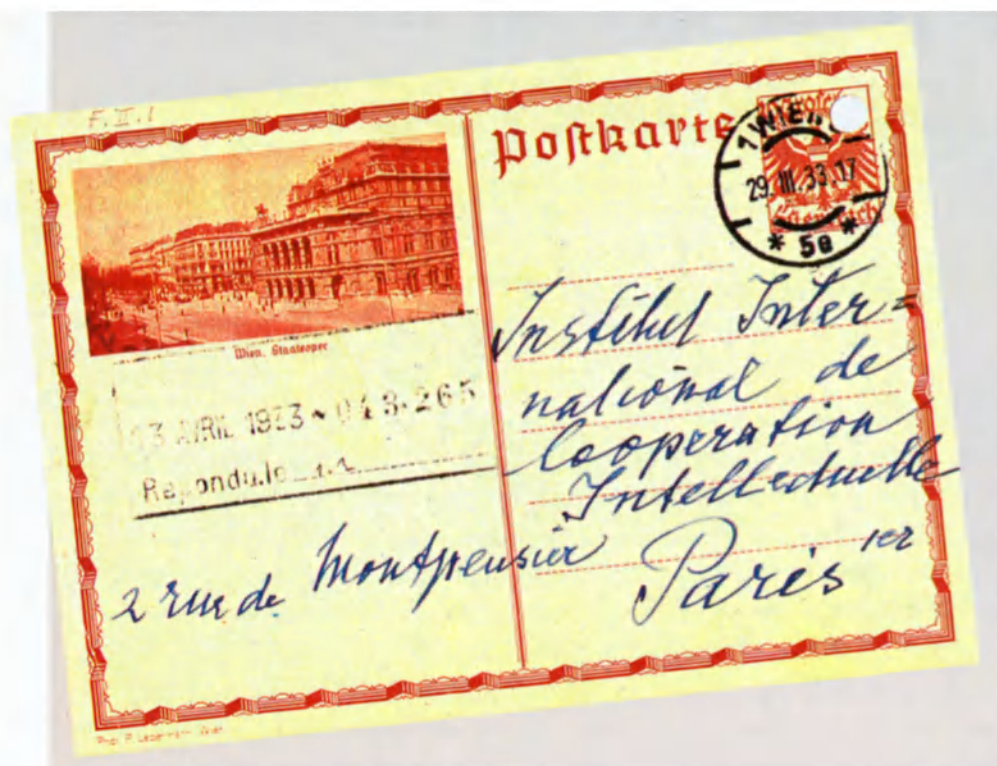 F.II.1
Postkarte
1 WIEN
29.III.33.17
* 5e *
Österreich
Wien, Staatsoper
13 AVRIL 1933 ~ 043.265
Répondu le
Institut Inter=
national de
Cooperation
Intellectuelle
2 rue de Montpensier Paris 1er